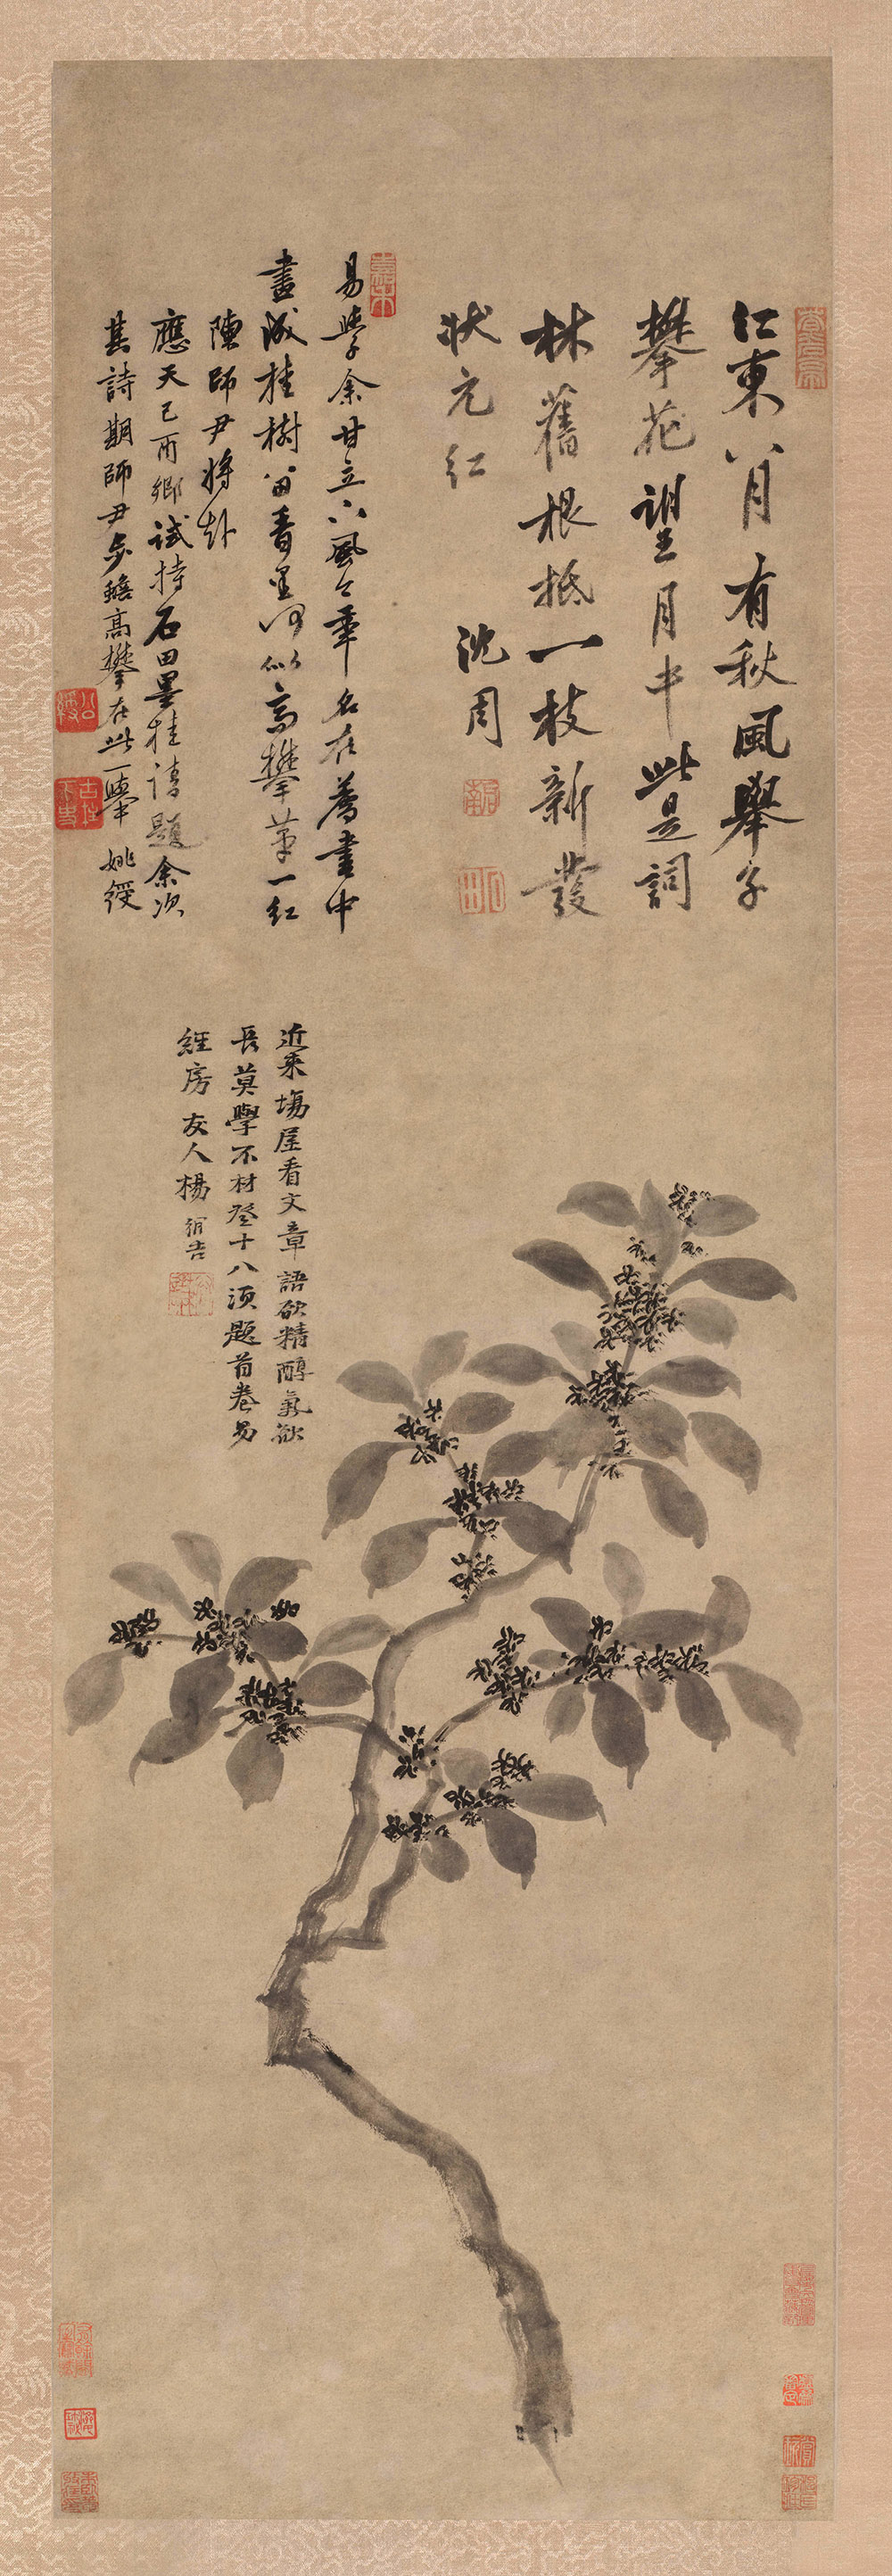 江東八月有秋風舉子
攀花望月中此是詞
林舊根柢一枝新發
狀元紅
沈周
易學余甘立下風公車名在薦書中
畫成桂樹留看星何似高攀第一紅
陳師尹將赴
應天己酉鄉試持石田墨桂請題余次
其詩期師尹蟾高攀在此一舉 姚綬
近來場屋看文章語欲精醇氣欲
長莫學不材登十八須題首卷易
經房 友人楊循吉